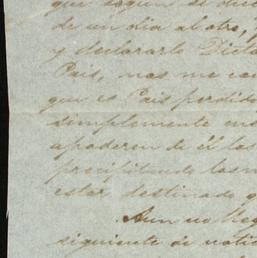 que segun se dice
de un dia al otro,
y declararlo Dicta
Pais, mas me
que es Pais perdido
simplemente
apoderen de él las
precipitando
estar destinado
Aun no lleg
siguiente